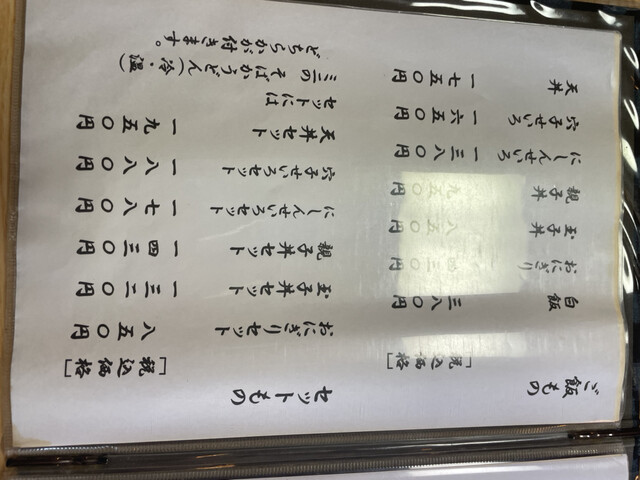 ご飯もの
[税込価格]
白飯 三八〇円
おにぎり
玉子丼 八五〇円
親子丼 九五〇円
にしんせいろ 一三八〇円
穴子せいろ 一六五〇円
天丼 一七五〇円
セットもの
[税込価格]
おにぎりセット 八五〇円
玉子丼セット 一三二〇円
親子丼セット 一四三〇円
にしんせいろセット 一七八〇円
穴子せいろセット 一八八〇円
天丼セット 一九五〇円
セットには
ミニのそばかうどん(冷・温)
どちらかが付きます。